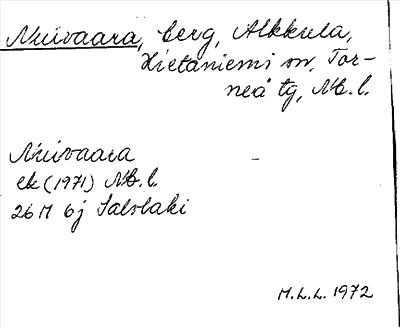 Niivaara, berg, Alkkula,
Hietaniemi sn, Tor-
neå tg, Nb. l.
Niivaara
ek (1971) Nb. l.
26 M 6j Salolaki
M.L.L. 1972